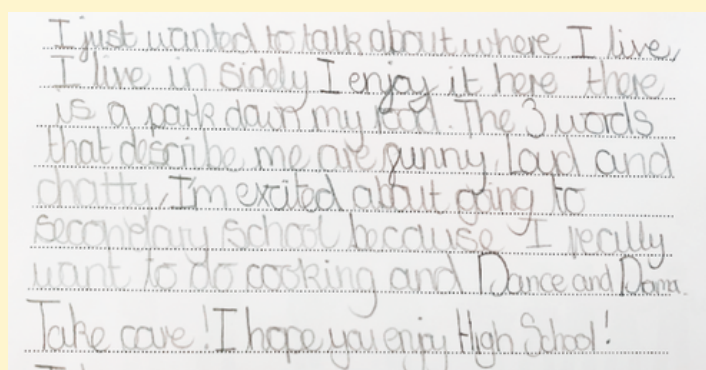 I just wanted to talk about where I live,
I live in sidely I enjoy it here there
is a park down my rood. The 3 words
that describe me are funny, loud and
chatty, I'm exited about going to
secondary school because I really
want to do cooking and Dance and Drama.
Take care! I hope you enjoy High School!